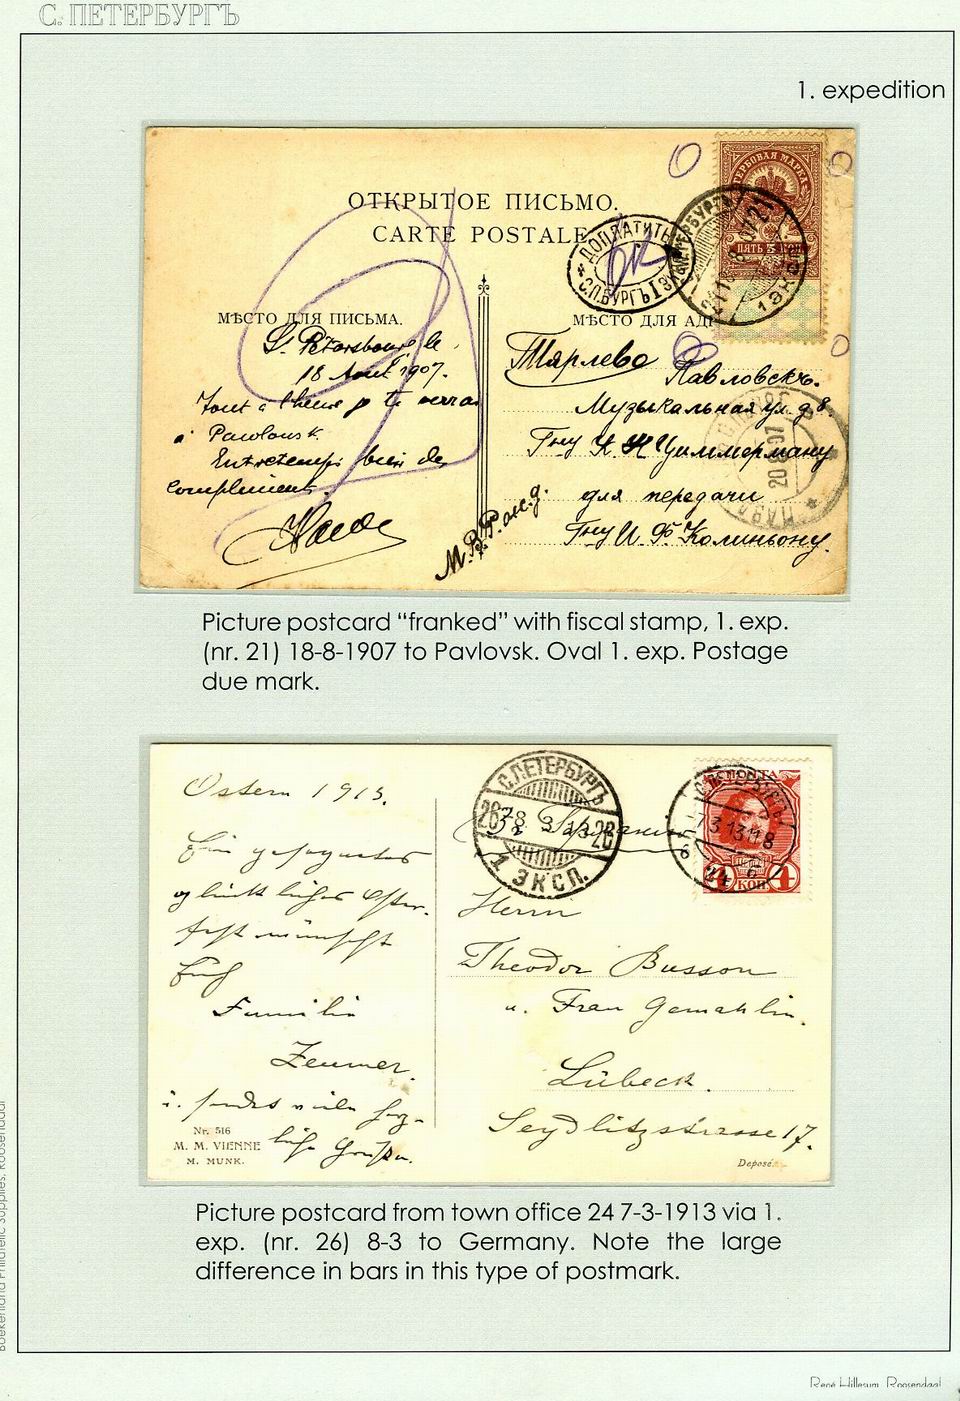 С. ПЕТЕРБУРГЪ
1. expedition
ОТКРЫТОЕ ПИСЬМО.
CARTE POSTALE
ГЕРБОВАЯ МАРКА
ПЯТЬ 5 КОП
ДОПЛАТИТЬ
С.П.БУРГЪ I ЭКСП
21 1 ЭКСП 21
МѢСТО ДЛЯ ПИСЬМА.
МѢСТО ДЛЯ АД
St. Petersbourg le
18 Aout 1907.
Tout à l'heure je te verrai
à Pawlowsk.
Entretemps bien des
compliments.
Тярлево
Павловскъ.
Музыкальная ул. д 8.
Гну К. К. Циммерману
для передачи
Гну И. Ф. Колиньону.
М.В.Р. ж.д.
20 8 07
Picture postcard “franked” with fiscal stamp, 1. exp.
(nr. 21) 18-8-1907 to Pavlovsk. Oval 1. exp. Postage
due mark.
Ostern 1913.
Ein gesegnetes
glückliches Oster-
fest wünscht
Euch
Familie
Zeumer.
u. sendet viele herz-
liche Grüße.
С.ПЕТЕРБУРГЪ
26 8 3 13 26
1 ЭКСП.
7 3 13 8
24
4 КОП 4
Herrn
Theodor Busson
u. Frau Gemahlin.
Lübeck.
Seydlitzstrasse 17.
Nr. 516
M. M. VIENNE
M. MUNK.
Deposé
Picture postcard from town office 24 7-3-1913 via 1.
exp. (nr. 26) 8-3 to Germany. Note the large
difference in bars in this type of postmark.
Boekenland Philatelic Supplies, Roosendaal
René Hillesum, Roosendaal